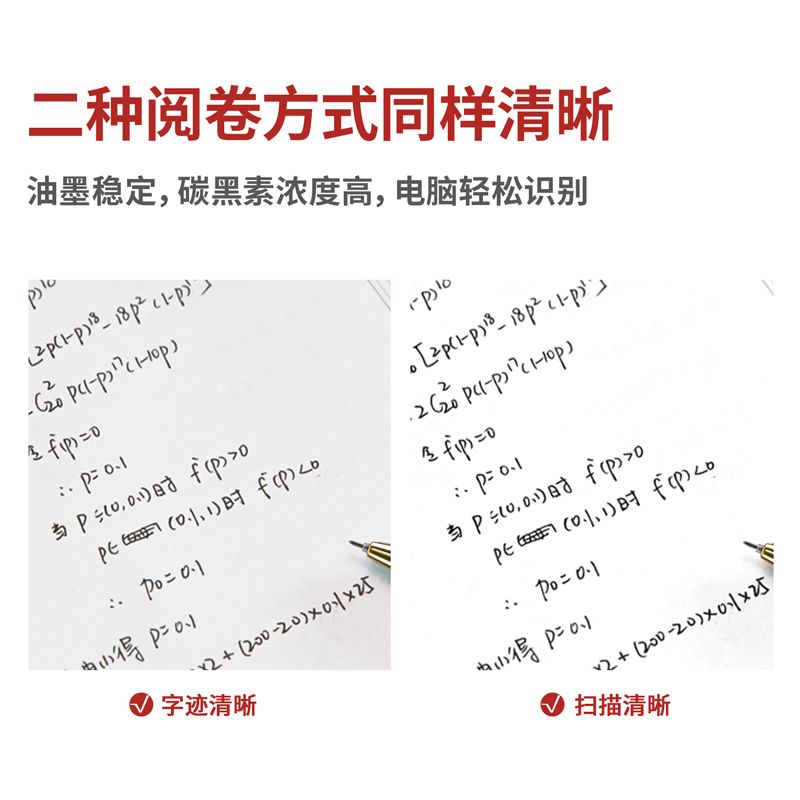 二种阅卷方式同样清晰
油墨稳定，碳黑素浓度高，电脑轻松识别
-p)¹⁰
[2p(1-p)¹⁸-18p²(1-p)¹⁷]
2C²₂₀ p(1-p)¹⁷(1-10p)
令 f'(p)=0
∴ p=0.1
当 P=(0,0.1)时 f'(p)>0
p∈ (0.1,1)时 f'(p)<0
∴ p₀=0.1
得 p=0.1
×2+(200-20)×0.1×25
-p)¹⁰
[2p(1-p)¹⁸-18p²(1-p)¹⁷]
.2C²₂₀ p(1-p)¹⁷(1-10p)
令 f'(p)=0
∴ p=0.1
当 P=(0,0.1)时 f'(p)>0
p∈ (0.1,1)时 f'(p)<0
∴ p₀=0.1
得 p=0.1
×2+(200-20)×0.1×25
字迹清晰
扫描清晰